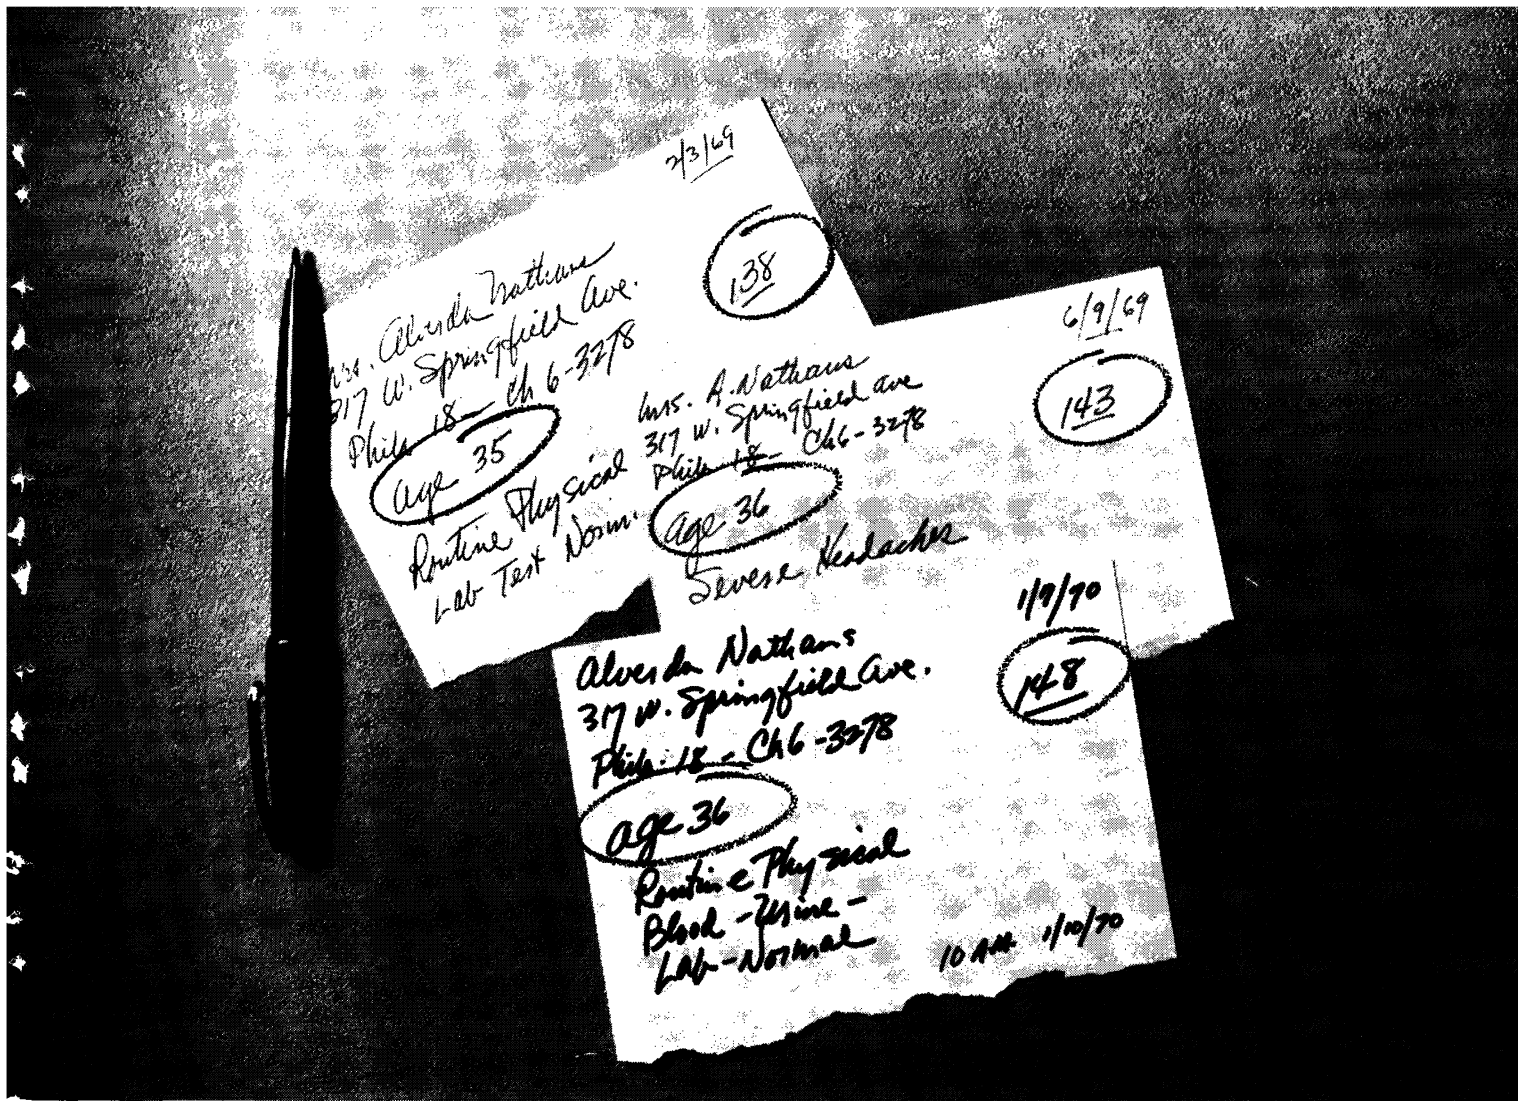 2/3/69
138
Mrs. Alverda Nathans
317 W. Springfield Ave.
Phila 18 - Ch 6-3278
age 35
Routine Physical
Lab Test Norm.
6/9/69
143
Mrs. A. Nathans
317 W. Springfield Ave
Phila 18 - Ch6-3278
age 36
Severe Headaches
1/9/70
148
Alverda Nathans
317 W. Springfield Ave.
Phila. 18 - Ch6-3278
age 36
Routine Physical
Blood - Urine -
Lab - Normal
10 AM 1/10/70